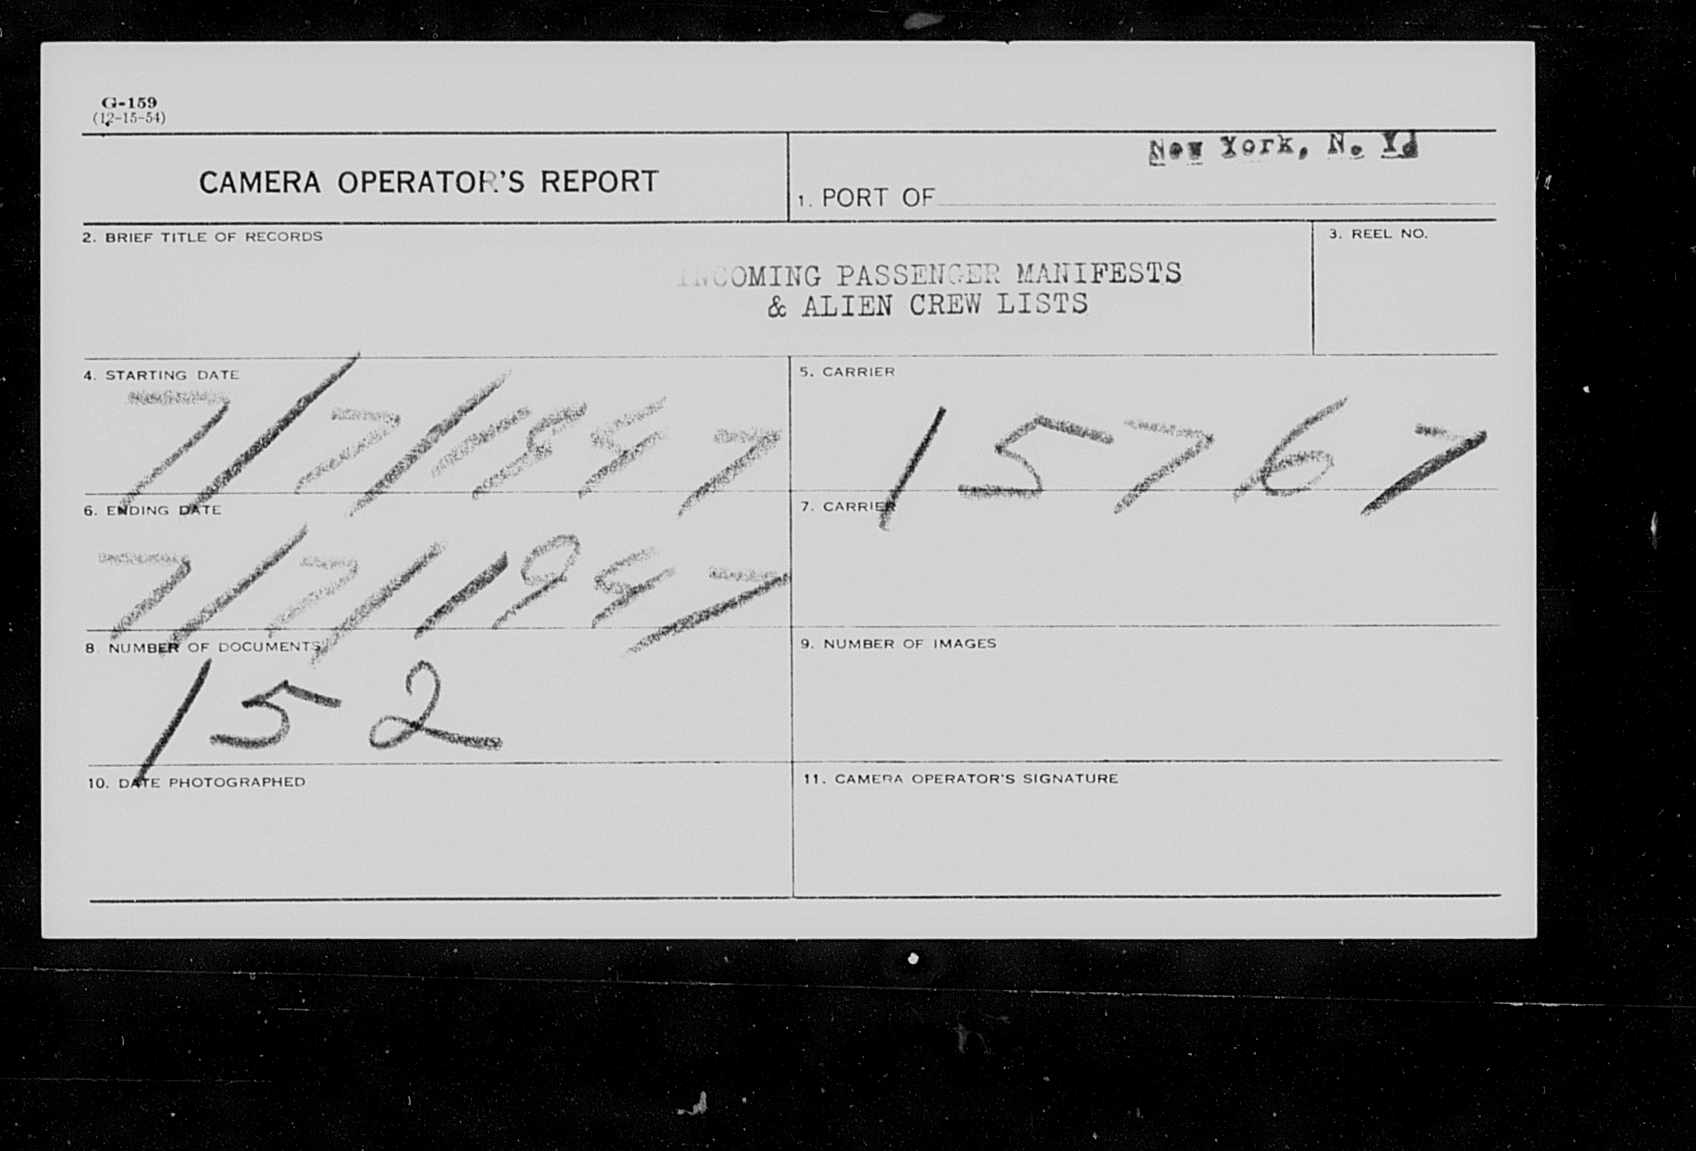 G-159
(12-15-54)
CAMERA OPERATOR'S REPORT
New York, N. Y.
1. PORT OF
2. BRIEF TITLE OF RECORDS
3. REEL NO.
INCOMING PASSENGER MANIFESTS
& ALIEN CREW LISTS
4. STARTING DATE
7/7/1947
5. CARRIER
15767
6. ENDING DATE
7/7/1947
7. CARRIER
8. NUMBER OF DOCUMENTS
152
9. NUMBER OF IMAGES
10. DATE PHOTOGRAPHED
11. CAMERA OPERATOR'S SIGNATURE